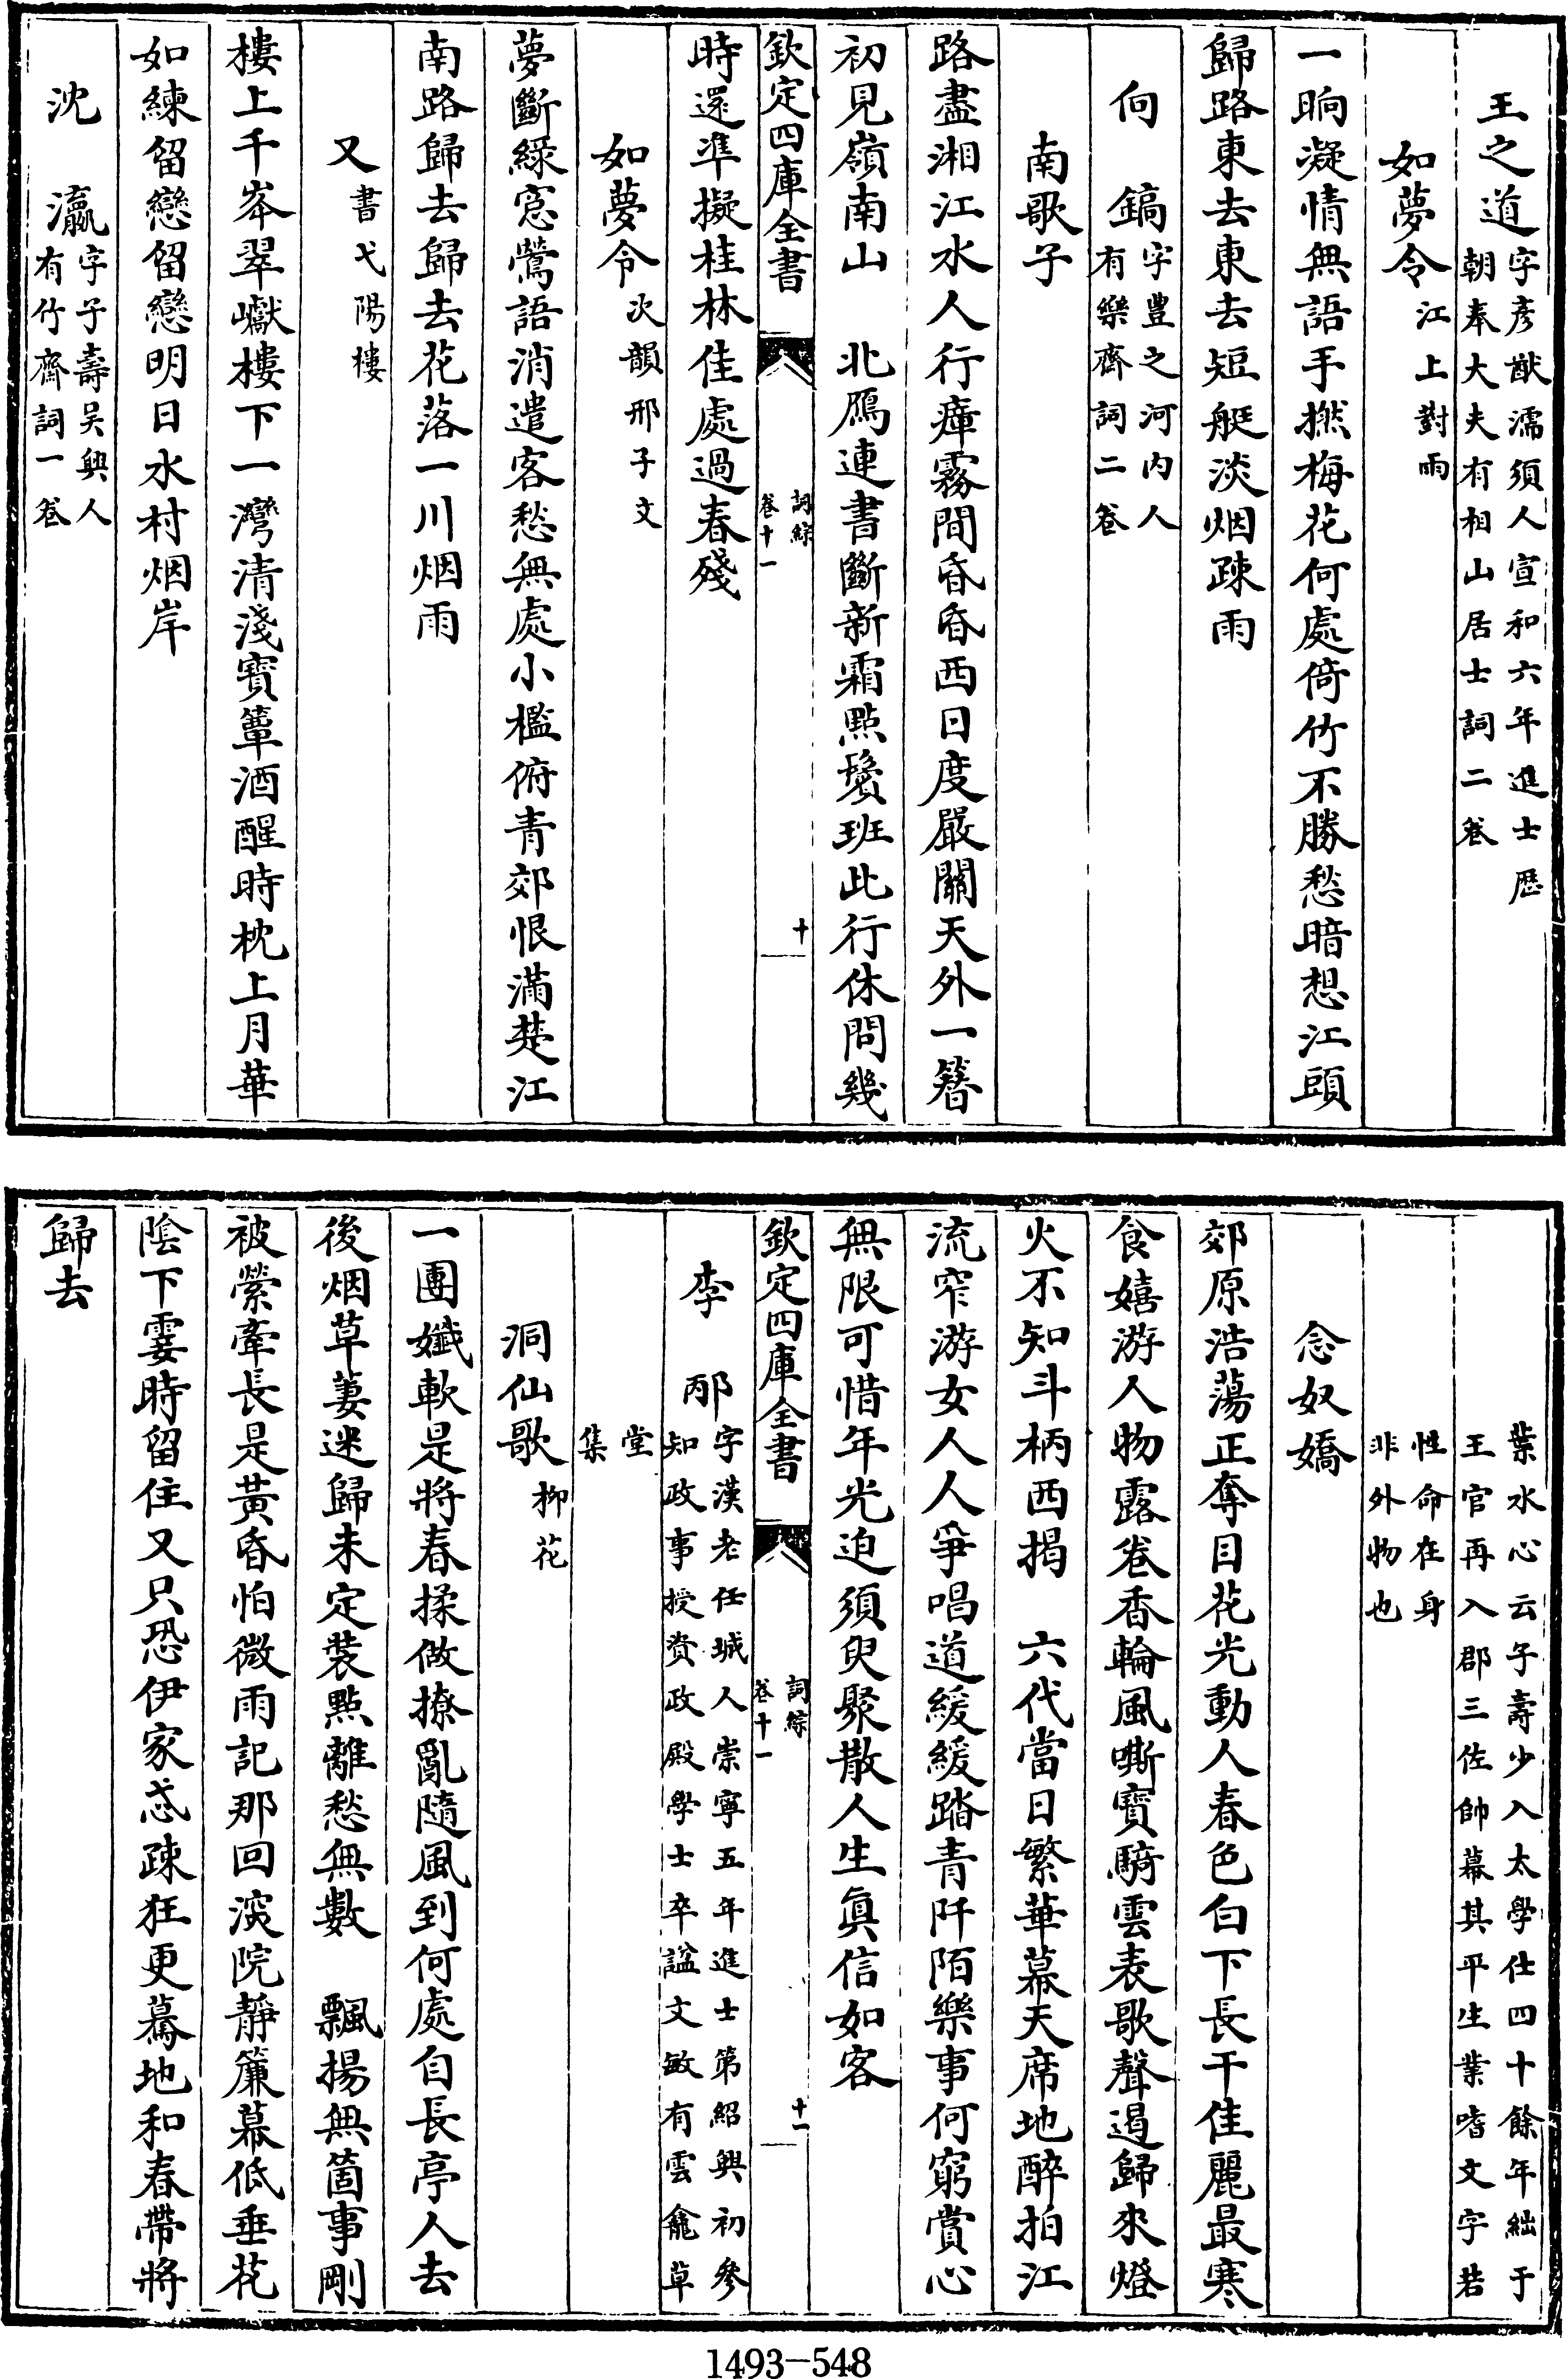 王之道字彥猷濡須人宣和六年進士歷
朝奉大夫有相山居士詞二卷
如夢令江上對雨
一晌凝情無語手撚梅花何處倚竹不勝愁暗想江頭
歸路東去東去短艇淡烟疎雨
向鎬字豐之河內人
有樂齋詞二卷
南歌子
路盡湘江水人行瘴霧間昏昏西日度嚴關天外一簪
初見嶺南山　北鴈連書斷新霜點鬢班此行休問幾
欽定四庫全書
詞綜
卷十一
十
時還準擬桂林佳處過春殘
如夢令次韻邢子文
夢斷綠窓鶯語消遣客愁無處小檻俯青郊恨滿楚江
南路歸去歸去花落一川烟雨
又書弋陽樓
樓上千峯翠巘樓下一灣清淺寶簟酒醒時枕上月華
如練留戀留戀明日水村烟岸
沈　瀛字子壽吳興人
有竹齋詞一卷
葉水心云子壽少入太學仕四十餘年絀于
王官再入郡三佐帥幕其平生業嗜文字若
性命在身
非外物也
念奴嬌
郊原浩蕩正奪目花光動人春色白下長干佳麗最寒
食嬉游人物露卷香輪風嘶寶騎雲表歌聲遏歸來燈
火不知斗柄西揭　六代當日繁華幕天席地醉拍江
流窄游女人人爭唱道緩緩踏青阡陌樂事何窮賞心
無限可惜年光迫須臾聚散人生真信如客
欽定四庫全書
詞綜
卷十一
十一
李　邴字漢老任城人崇寧五年進士第紹興初參
知政事授資政殿學士卒諡文敏有雲龕草
堂
集
洞仙歌柳花
一團孅軟是將春揉做撩亂隨風到何處自長亭人去
後烟草萋迷歸未定裝點離愁無數　飄揚無箇事剛
被縈牽長是黃昏怕微雨記那回深院靜簾幕低垂花
陰下霎時留住又只恐伊家忒疎狂更驀地和春帶將
歸去
1493-548